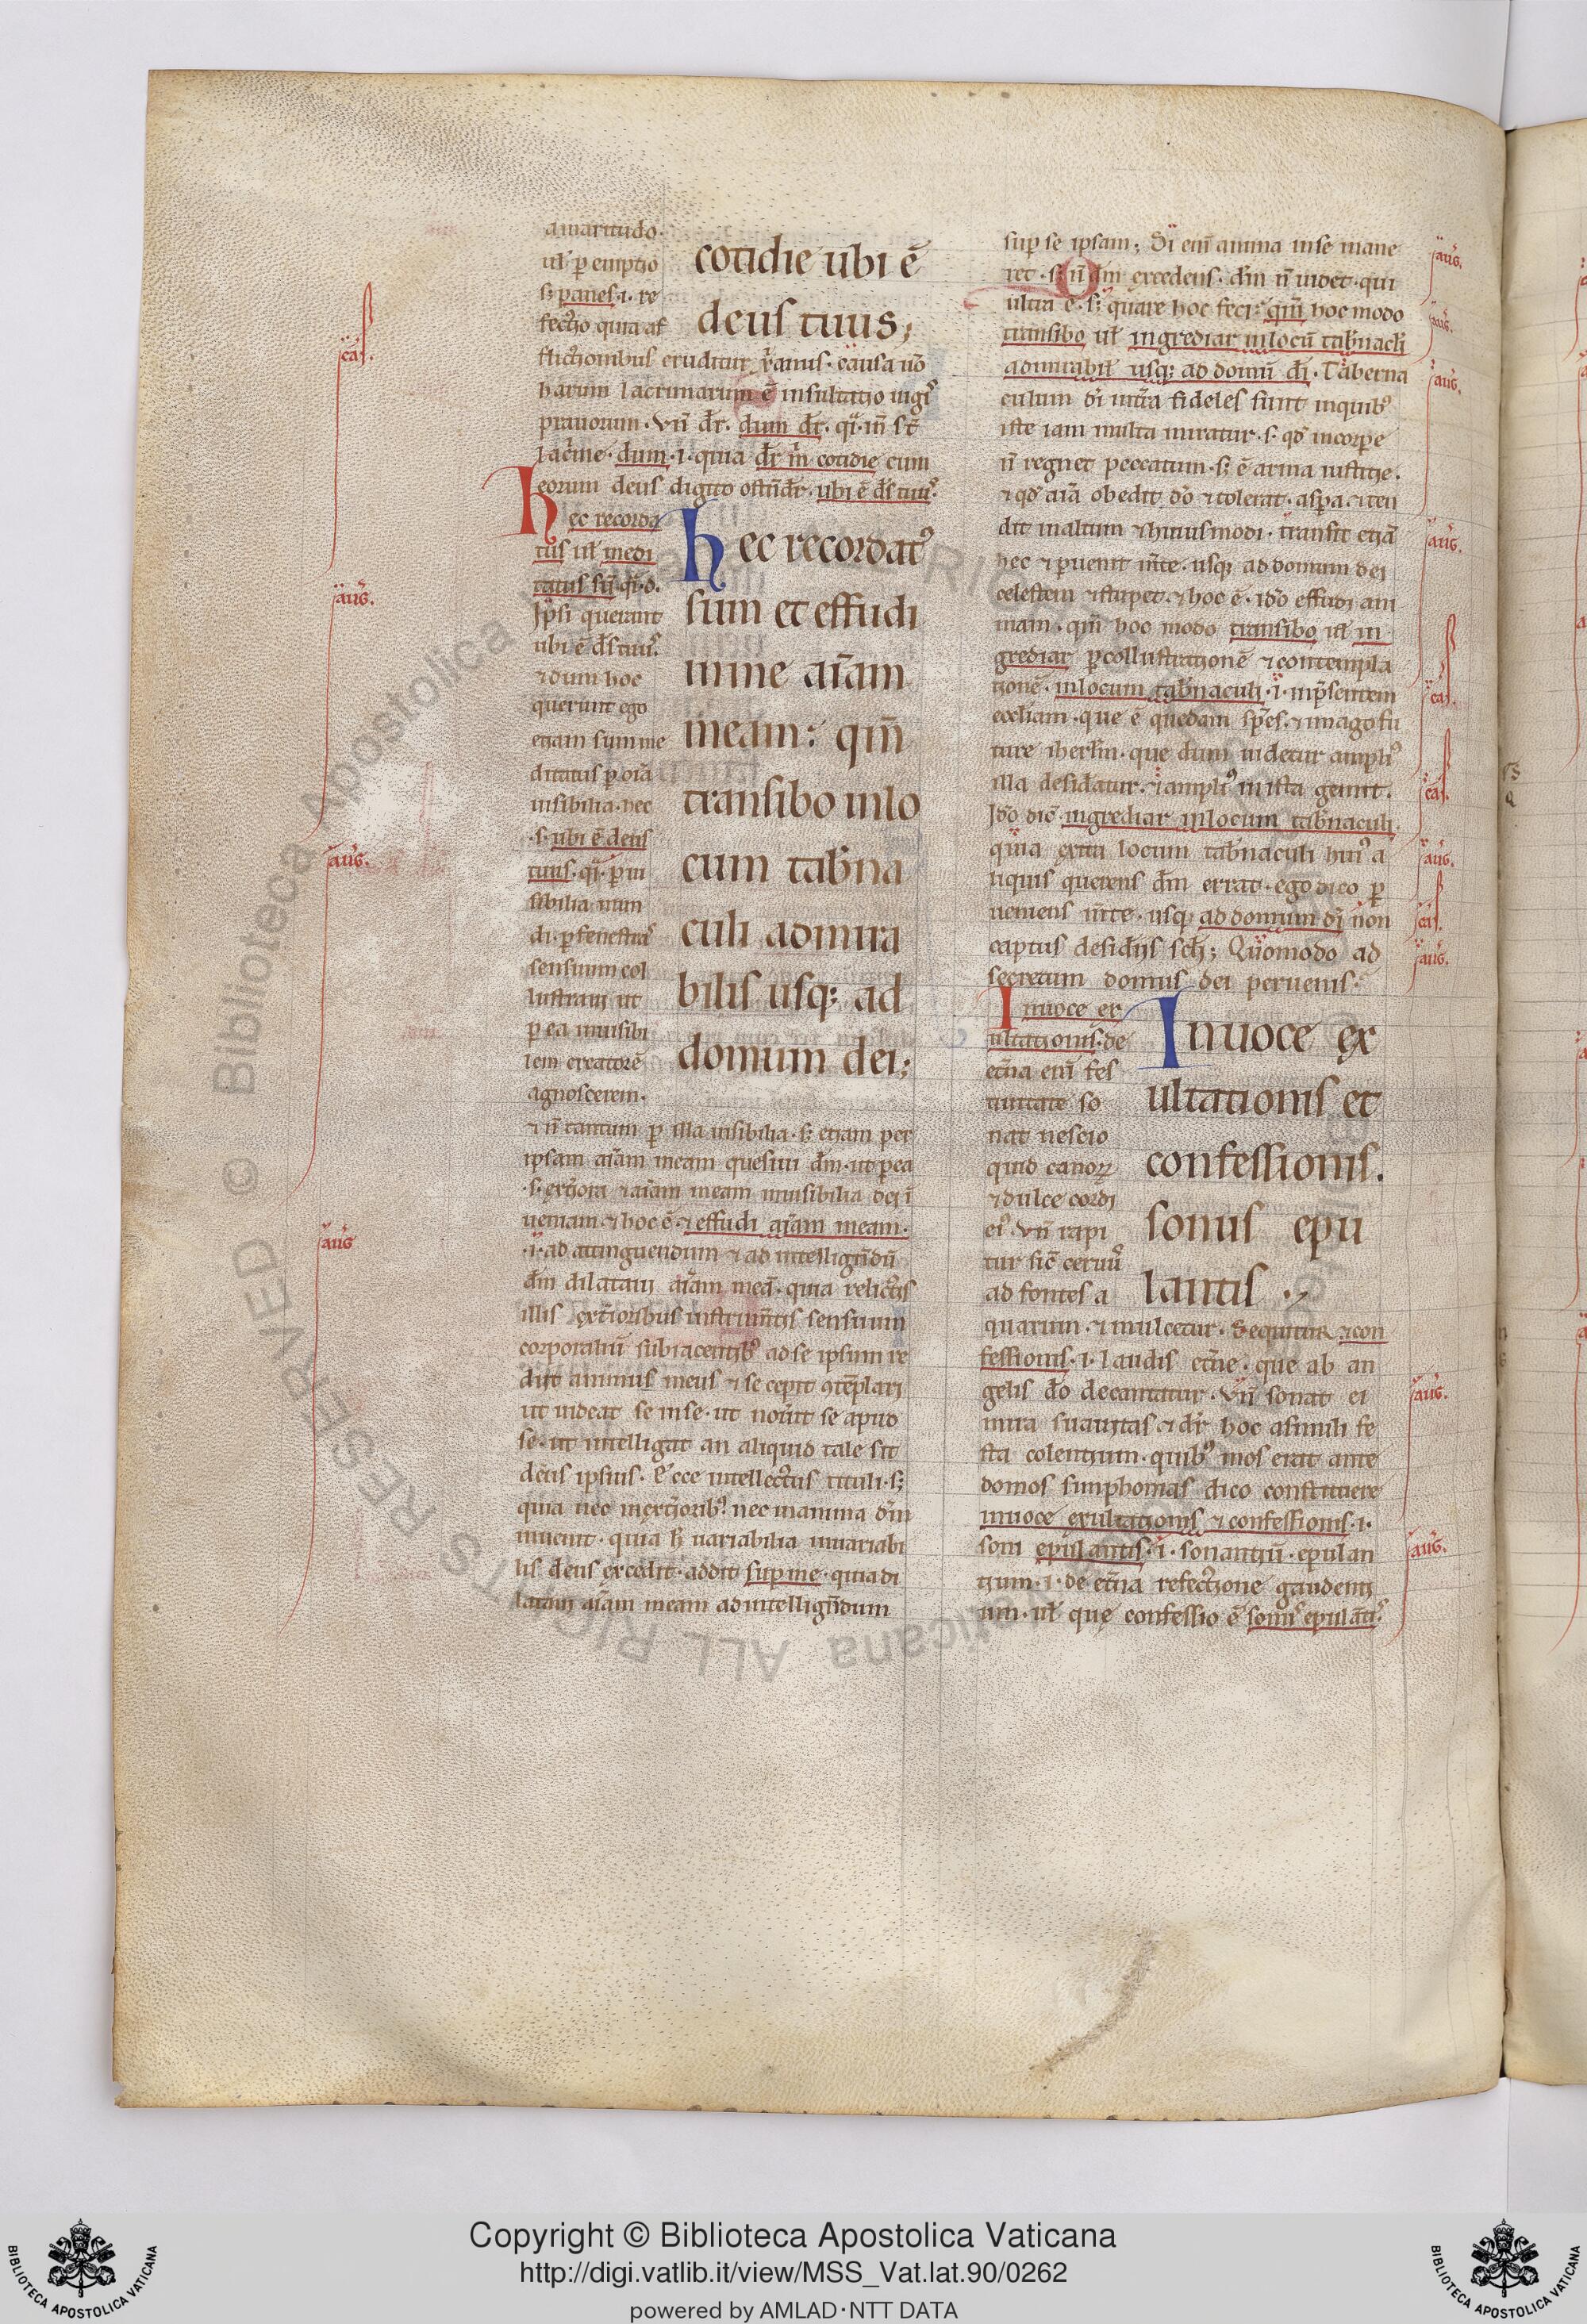 amaritudo.
ul̄ p̄ emptio
s; panes .i. re
fectio quia af
cotidie ubi ē
deus tuus;
flictionibus eruditur x̄anus. causa uō
harum lacrimarum ē insultatio iugis
prauorum. Vn̄ dr̄. dum dr̄. q̄i. in st̄
lacrime. dum .i. quia dr̄ m̄ cotidie cum
eorum deus digito ostn̄dr̄. ubi ē ds̄ tuus.
Hec recorda
tus ul̄ medi
tatus sū. q̄i. d.
Ipsi querant
ubi ē ds̄ tuus.
⁊ dum hoc
querunt ego
etiam sum me
ditatus p oīa
uisibilia. hec
.s. ubi ē deus
tuus. q̄i. p ui
sibilia mun
di. p fenestras
sensuum col
lustraui ut
p ea inuisibi
lem creatorē
agnoscerem.
Hec recordatꝰ
sum et effudi
in me aīam
meam: qm̄
transibo in lo
cum tab̄na
culi admira
bilis usq; ad
domum dei;
⁊ n̄ tantum p illa uisibilia. s; etiam per
ipsam aīam meam quesiui dm̄. ut p ea
.s. exteriora ⁊ aīam meam inuisibilia dei ī
ueniam. ⁊ hoc ē. ⁊ effudi aīam meam.
.i. ad attinguendum ⁊ ad intelligendū
dm̄ dilataui aīam meā. quia relictis
illis exterioribus instrumtis sensuum
corporaliū subiacentibꝰ ad se ipsum re
diit animus meus ⁊ se cepit ꝯtēplari
ut uideat se in se. ut nouit se apud
se. ut intelligat an aliquid tale sit
deus ipsius. Ecce intellectus tituli. s;
quia nec in exterioribꝰ. nec in anima dm̄
inuenit. quia h̄ uariabilia inuariabi
lis deus excedit. addit sup me. quia di
lataui aīam meam ad intelligendum
sup se ipsam; Si eni anima in se mane
ret. s; n̄ dm̄ excedens. dm̄ n̄ uidet. qui
ultra ē. s; quare hoc feci: qm̄ hoc modo
transibo ul̄ ingrediar in locū tab̄nacli
admirabil̄ usq; ad domū di. Taberna
culum di intra fideles sunt in quibꝰ
iste iam multa miratur. s. qd̄ in corpe
n̄ regnet peccatum. s; ē arma iustitie.
⁊ qd̄ aīa obedit dō ⁊ tolerat aspera. ⁊ ten
dit in altum ⁊ huiusmodi. transit etiā
hec ⁊ puenit in̄te. usq; ad domum dei
celestem ⁊ stupet. ⁊ hoc ē. ido effudi ani
mam. qm̄ hoc modo transibo ul̄ in
grediar p collustrationē ⁊ contempla
tionē. in locum tab̄naculi .i. in p̄sentem
eccl̄iam. que ē quedam spēs. ⁊ imago fu
ture iherl̄m. que dum uidetur ampliꝰ
illa desideratur. ⁊ ampliꝰ in ista gemit.
Ido dic̄. ingrediar in locum tab̄naculi.
quia extra locum tab̄naculi huiꝰ a
liquis querens dm̄ errat. ego dico p
ueniens in̄te. usq; ad domum di non
captus desideriis scl̄i; Quomodo ad
secretum domus dei peruenis.
In uoce ex
ultationis. de
etn̄a eni fes
tiuitate so
nat nescio
quid canorꝝ
⁊ dulce cordi
eiꝰ. vn̄ rapi
tur sic̄ ceruus
ad fontes a
In uoce ex
ultationis et
confessionis.
sonus epu
lantis.
quarum. ⁊ mulcetur. Sequitur ⁊ con
fessionis .i. laudis etn̄e. que ab an
gelis dō decantatur. Vn̄ sonat ei
mira suauitas ⁊ dr̄ hoc a simili fe
sta colentium. quibꝰ mos erat ante
domos simphonias dico constituere
in uoce exultationis ⁊ confessionis .i.
soni epulantis .i. sonantiū. epulan
tium .i. de etn̄a refectione gaudenti
um. ul̄ que confessio ē sonus epulātis.
cas.
aug.
aug.
aug
aug.
aug.
aug.
aug.
cas.
cas.
aug.
cas.
aug.
aug.
aug.
Copyright © Biblioteca Apostolica Vaticana
http://digi.vatlib.it/view/MSS_Vat.lat.90/0262
powered by AMLAD·NTT DATA
BIBLIOTECA APOSTOLICA VATICANA
BIBLIOTECA APOSTOLICA VATICANA